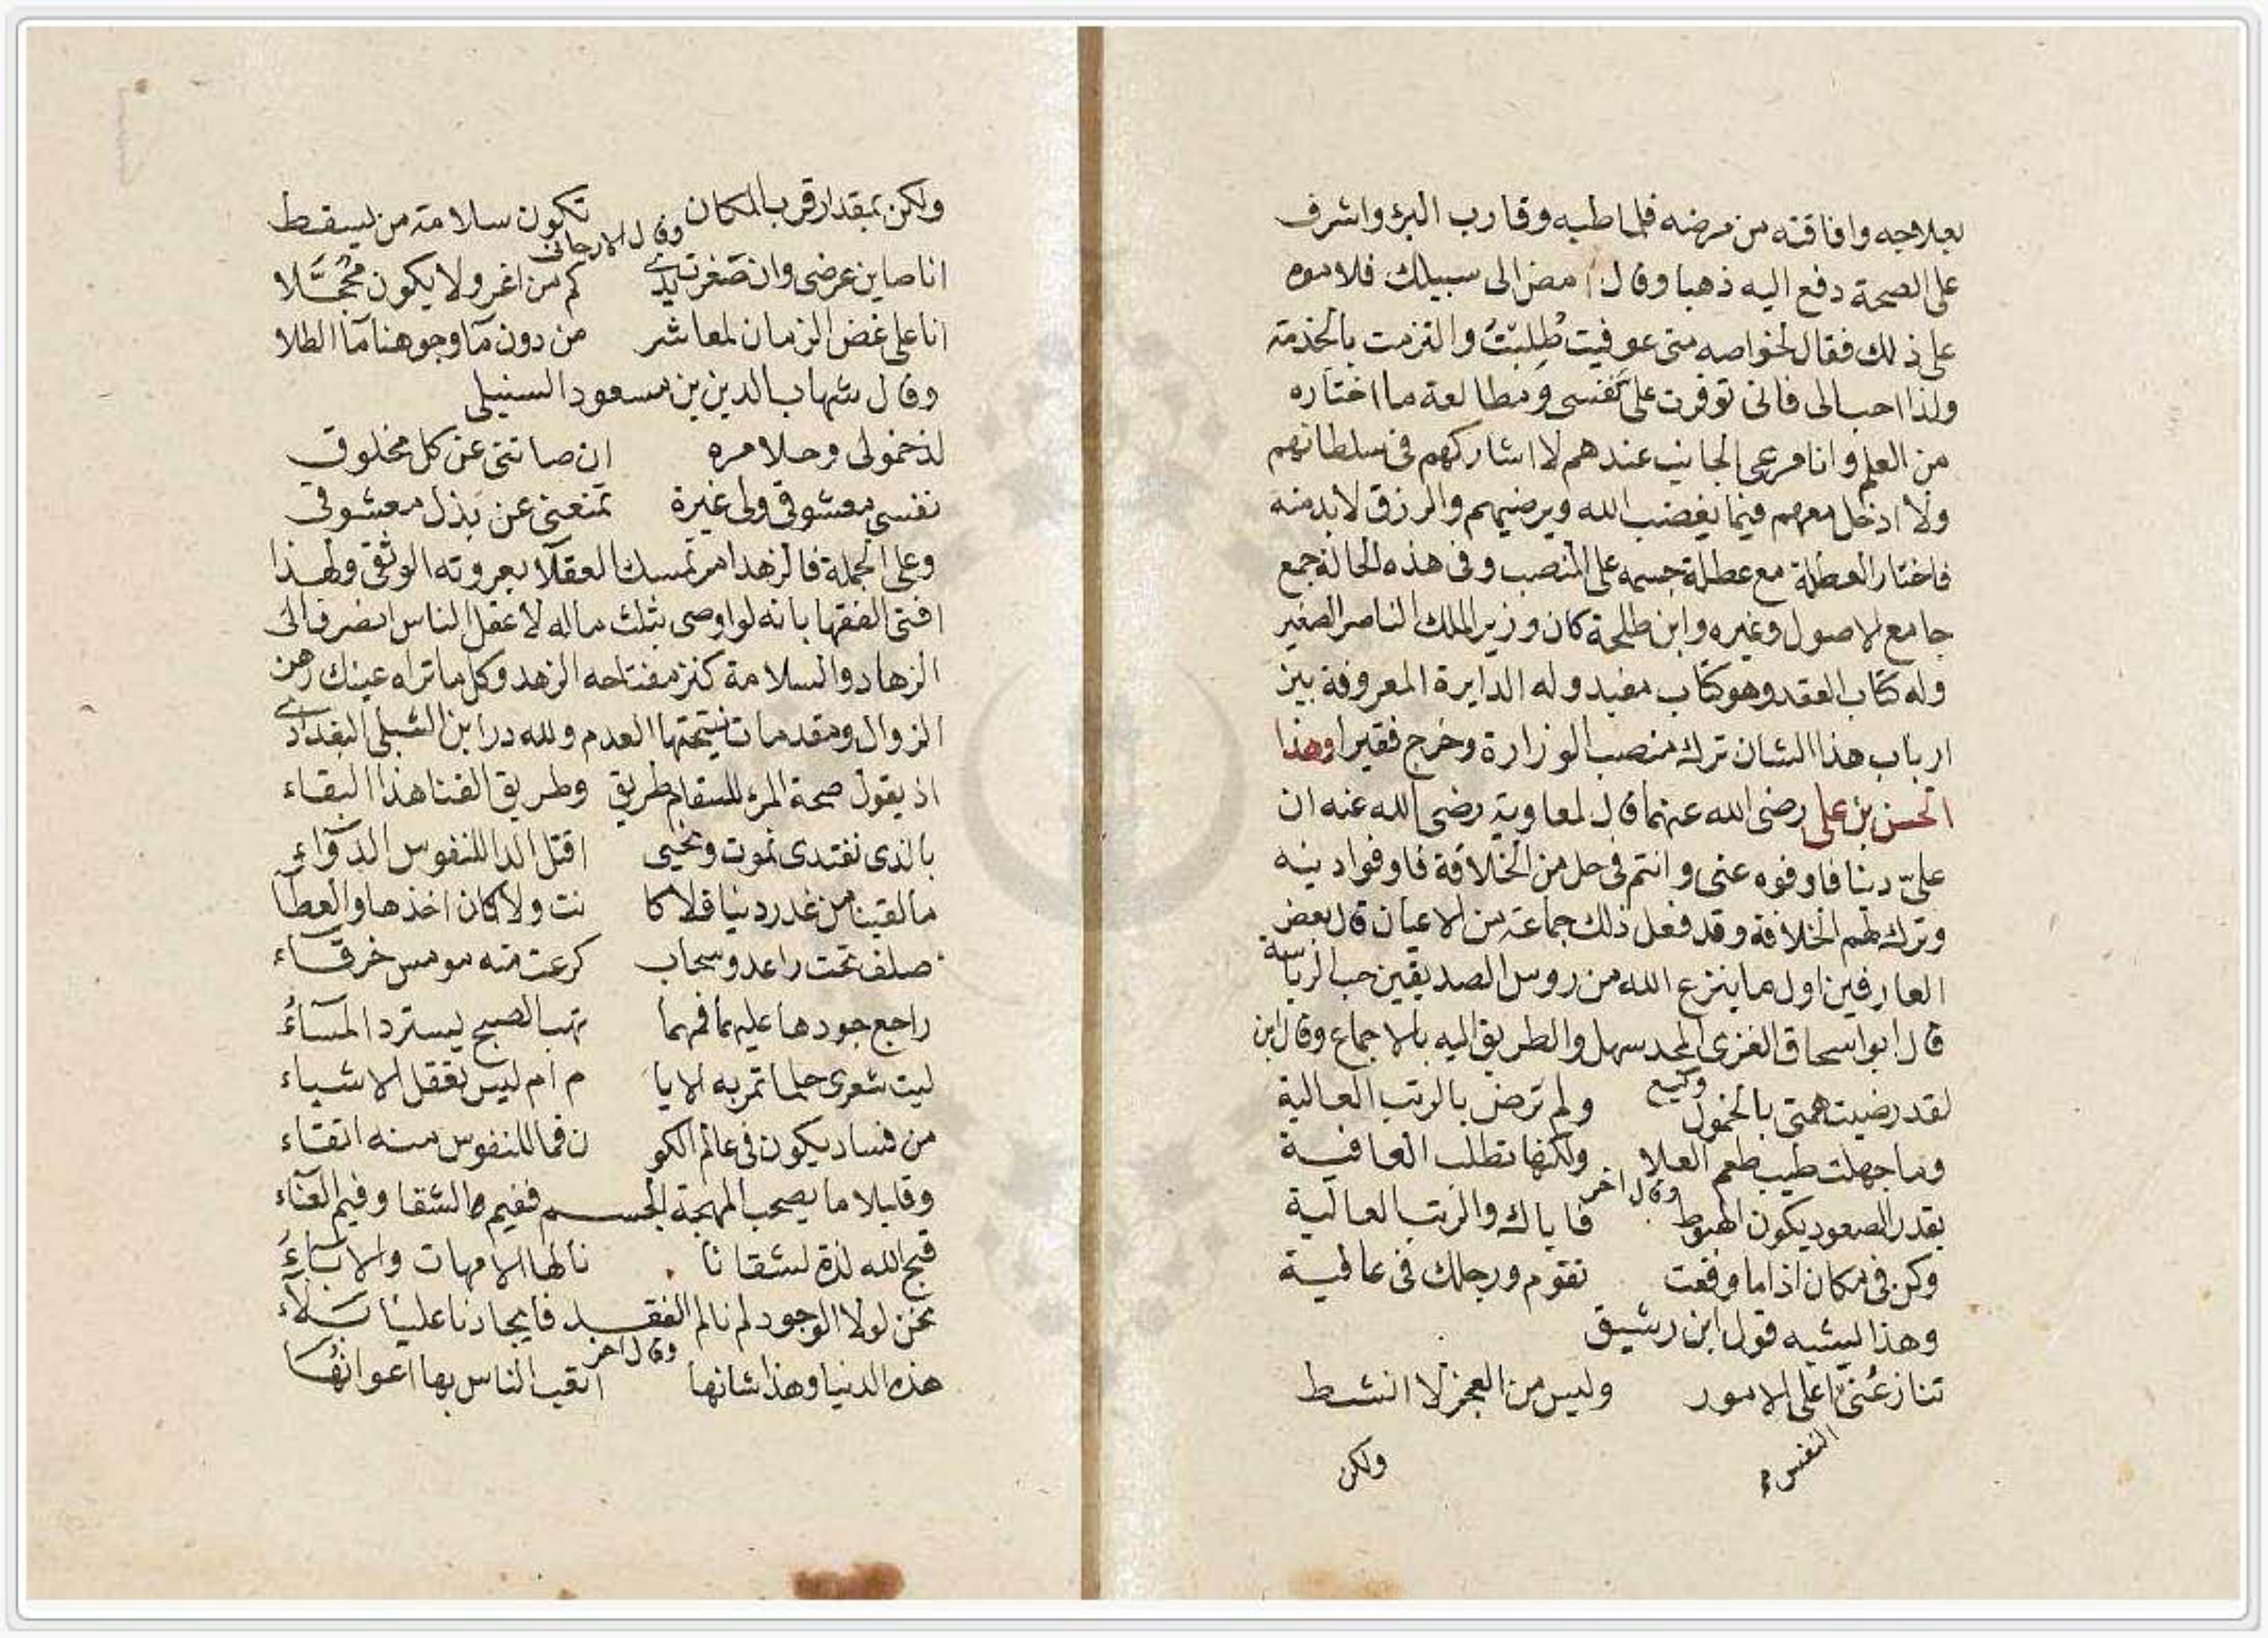 بعلاجه وافاقته من مرضه فلما طبه وقارب البرؤ واشرف
على الصحة دفع اليه ذهبا وقال امض الى سبيلك فلاموه
على ذلك فقال لخواصه متى عوفيت طُلِبْتُ والتزمت بالخدمة
ولذا احب الى فانى توفرت على نفسى ومطالعة ما اختاره
من العلم وانا مرعى الجانب عندهم لا اشاركهم فى سلطانهم
ولا ادخل معهم فيما يغضب الله ويرضيهم والرزق لا بد منه
فاختار العطلة مع عطلة جسمه على المنصب وفى هذه الحالة جمع
جامع الاصول وغيره وابن طلحة كان وزير الملك الناصر الصغير
وله كتاب العقد وهو كتاب مفيد وله الدايرة المعروفة بين
ارباب هذا الشان ترك منصب الوزارة وخرج فقيرا وهذا
الحسن بن على رضى الله عنهما قال لمعاوية رضى الله عنه ان
علىّ دينا فاوفوه عنى وانتم فى حل من الخلافة فاوفوا دينه
وترك لهم الخلافة وقد فعل ذلك جماعة من الاعيان قال بعض
العارفين اول ما ينزع الله من روس الصديقين حب الرياسة
قال ابو اسحاق الغزى المجد سهل والطريق اليه بالاجماع وقال ابن
وكيع
لقد رضيت همتى بالخمول ولم ترض بالرتب العالية
وما جهلت طيب طعم العلا ولكنها تطلب العافية
وقال اخر
بقدر الصعود يكون الهبوط فاياك والرتب العالية
وكن فى مكان اذا ما وقعت تقوم ورجلك فى عافية
وهذا يشبه قول ابن رشيق
تنازعنى اعلى الامور وليس من العجز لا انشط
النفس
ولكن
ولكن بمقدار قرب المكان تكون سلامة من يسقط
وقال الارجانى
انا صاين عرضى وان صفرت يدى كم من اغر ولا يكون مُحجَّلا
انا على غض الزمان لمعاشر من دون مآ وجوهنا مآ الطلا
وقال شهاب الدين بن مسعود السنبلى
لذ خمولى وحلا مره ان صاننى عن كل مخلوق
نفسى معشوقى ولى غيرة تمنعنى عن بذل معشوقى
وعلى الجملة فالزهد امر تمسك العقلآ بعروته الوثقى ولهذا
افتى الفقها بانه لو اوصى بثلث ماله لاعقل الناس انصرف الى
الزهاد والسلامة كنز مفتاحه الزهد وكل ما تراه عينك رهن
الزوال ومقدمات نتيجتها العدم ولله در ابن الشبلى البغدادى
اذ يقول صحة المرء للسقام طريق وطريق الفنا هذا البقاء
بالذى نغتدى نموت ونحيى اقتل الدا للنفوس الدوآء
ما لقينا من غدر دنيا فلا كا نت ولا كان اخذها والعطآ
صلف تحت راعد وسحاب كرعت منه مومس خرقاء
راجع جودها عليها فمهما يهب الصبح يسترد المسآءُ
ليت شعرى حلما تمر به الايا م ام ليس تعقل الاشياء
من فساد يكون فى عالم الكو ن فما للنفوس منه اتقاء
وقليلا ما يصحب المهجة الجسم ففيم الشقا وفيم العنآء
قبح الله لذة لشقانا نالها الامهات والابآءُ
نحن لولا الوجود لم نالم الفقد فايجادنا علينا بلآء
وقال اخر
هذه الدنيا وهذا شانها اتعب الناس بها اعوانُها